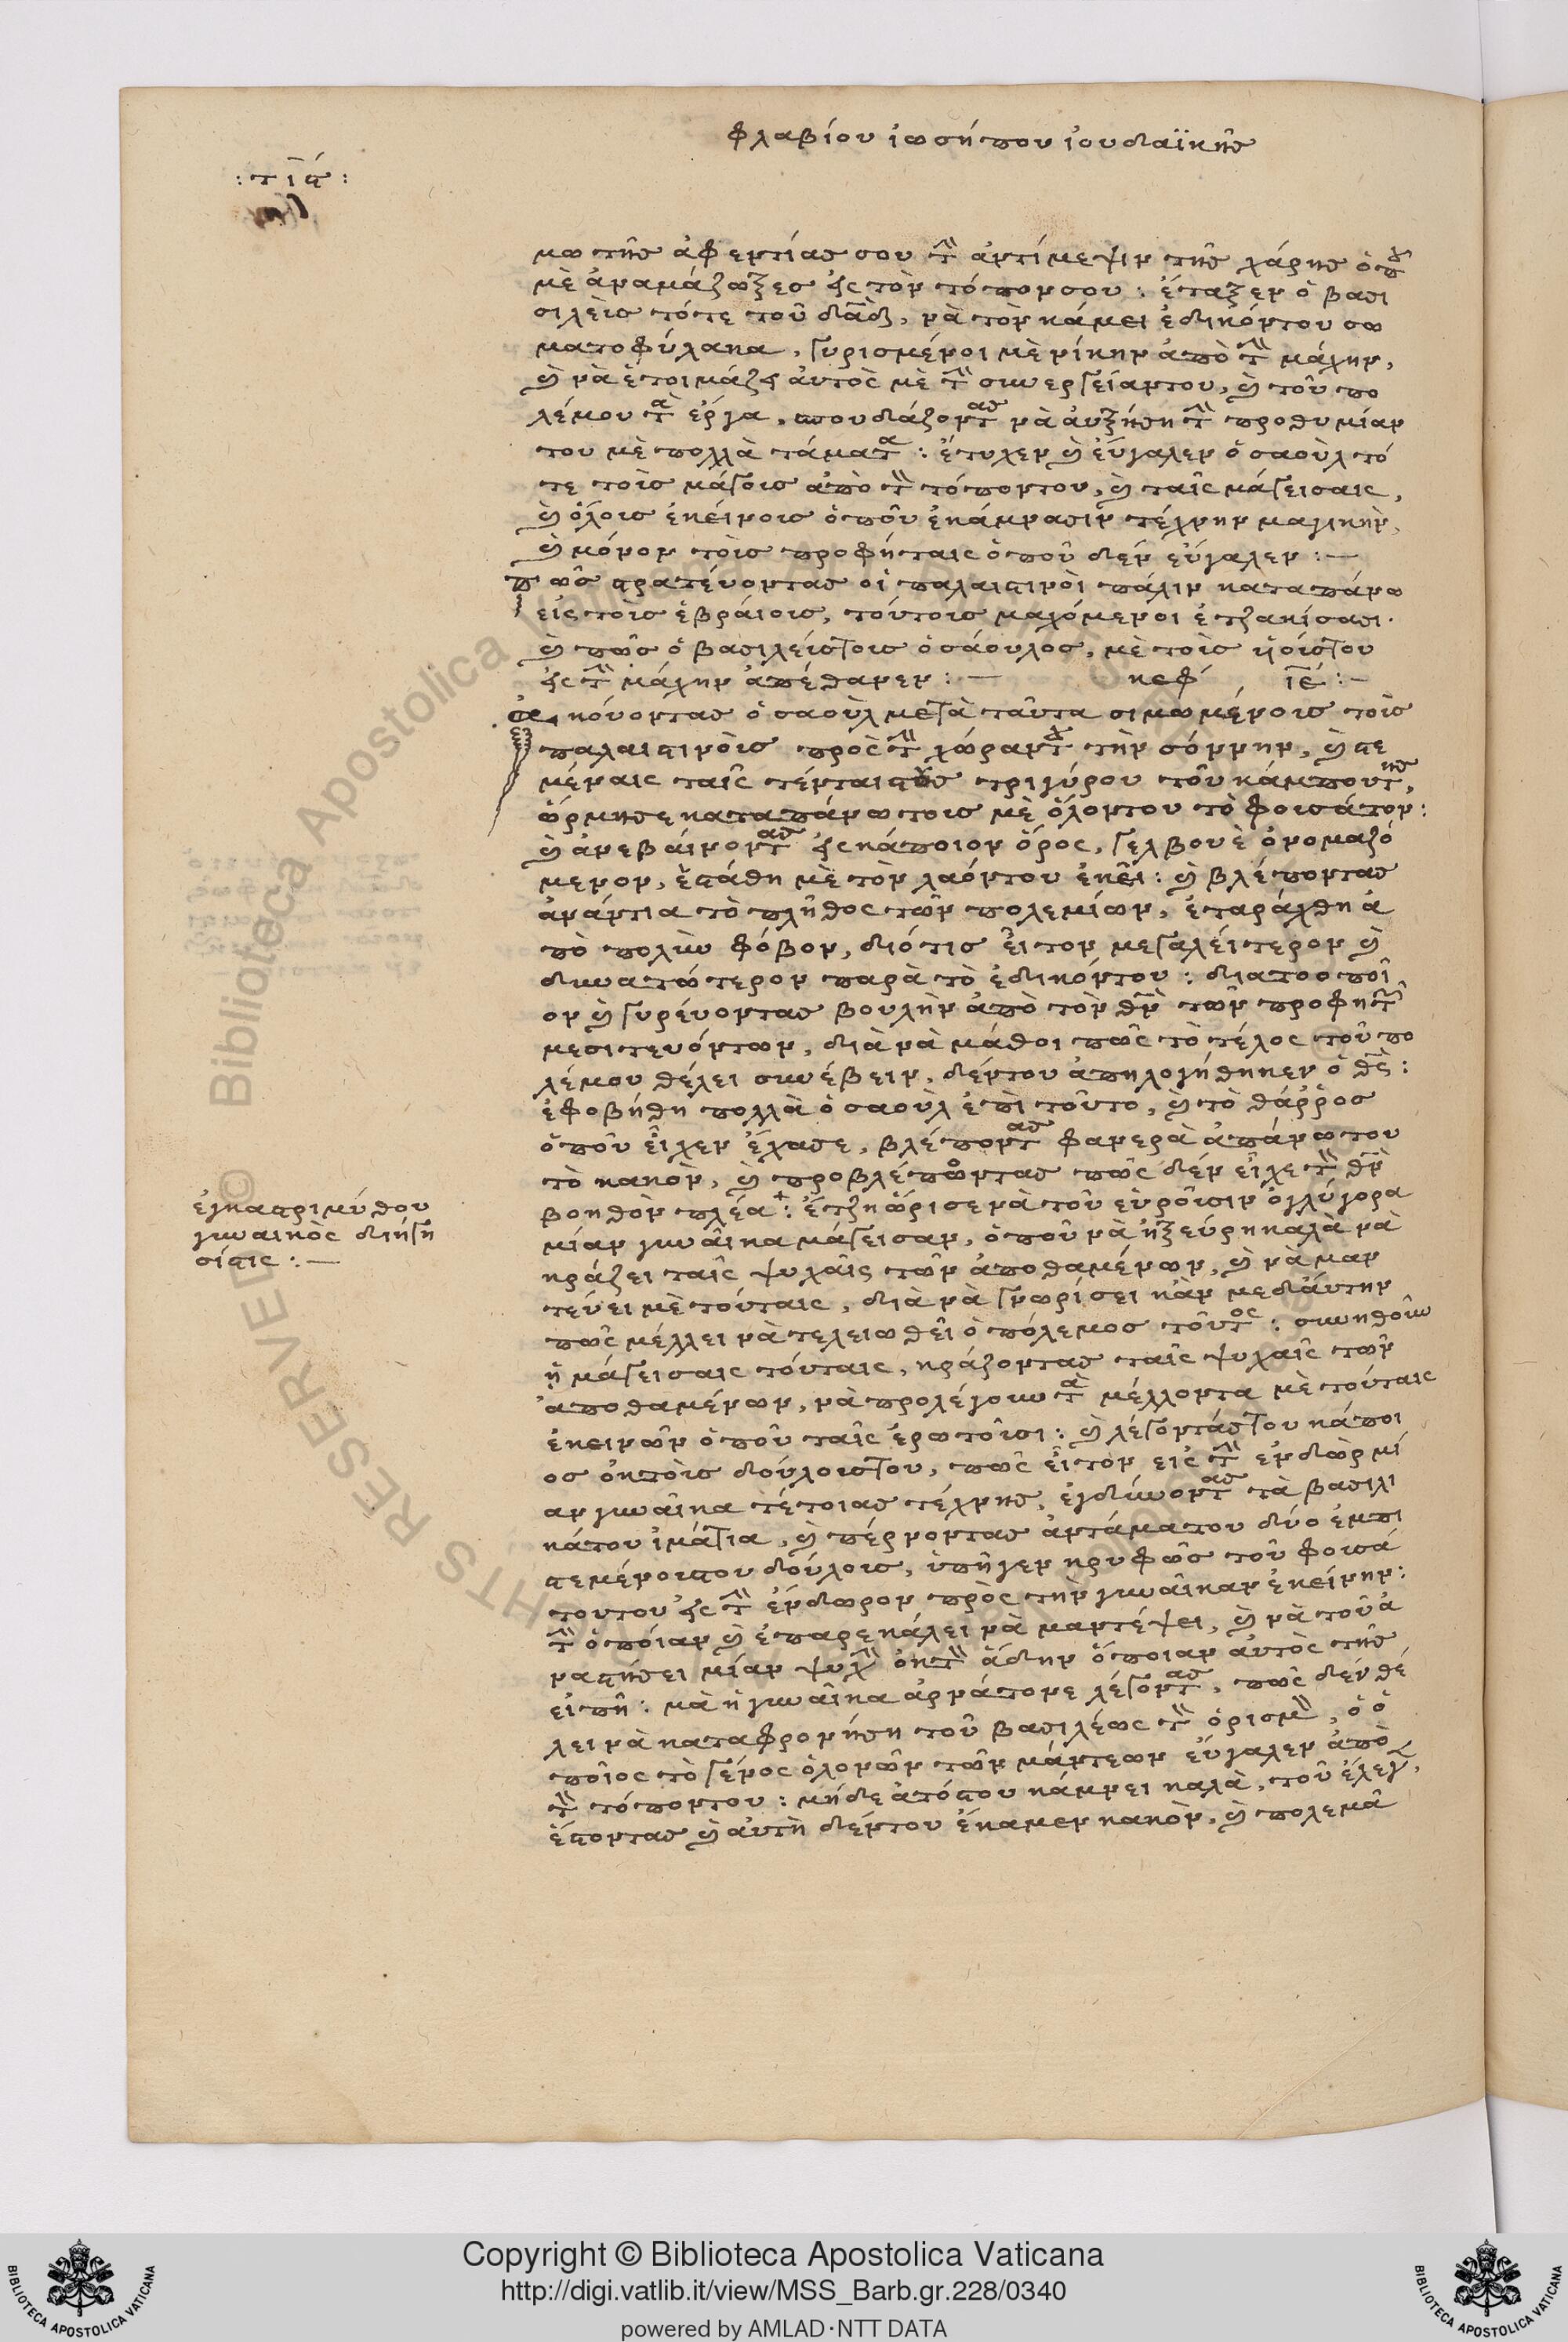 φλαβίου ἰωσήπου ἰουδαϊκῆσ
: τιϛ́ :
μω τῆσ ἀφεντίασ σου τὴν ἀντίμεψιν τῆσ χάρησ ὁποῦ
μὲ ἀναμάζωξεσ εἰς τὸν τόπον σου : ἔταξεν ὁ βασι
σιλεὶσ τότε τοῦ δαδ, νὰ τὸν κάμει ἐδικόντου σω
ματοφύλακα, γυρισμένοι μὲ νίκην ἀπὸ τὴν μάχην,
καὶ νὰ ἑτοιμάζει αὐτὸς μὲ τὴν συνεργείαντου, καὶ τοῦ πο
λέμου τὰ ἔργα, σπουδάζοντας νὰ αὐξήσῃ τὴν προθυμίαν
του μὲ πολλὰ τάματα : ἔτυχεν καὶ εὔγαλεν ὁ σαοὺλ τό
τε τοὶσ μάγοισ ἀπὸ τὸν τόποντου, καὶ ταῖς μάγεισαις,
καὶ ὅλοισ ἐκείνοισ ὁποῦ ἐκάμνασιν τέχνην μαγικὴν,
καὶ μόνον τοὶσ προφήταις ὁποῦ δεν εὔγαλεν : —
πῶσ στρατένοντασ οἱ παλαιστινοὶ πάλιν καταπάνω
εἰς τοὶσ ἑβραίοισ, τούτοισ μαχόμενοι ἐτζακίσασι.
καὶ πῶσ ὁ βασιλείστοισ ὁ σάουλοσ, μὲ τοὶσ ἡοίστου
εἰς τὴν μάχην ἀπέθανεν : — κεφ ιε : —
ἀκούοντασ ὁ σαοὺλ μετὰ ταῦτα σιμωμένοισ τοὶσ
παλαιστινοὶσ πρὸς τὴν χώραν τὴν σόννην, καὶ στε
μέναις ταῖς τένταιςτους τριγύρου τοῦ κάμπου της,
ὥρμησε καταπάνω τοισ μὲ ὅλοντου τὸ φουσάτον :
καὶ ἀνεβαίνοντας εἰς κάποιον ὄρος, γελβουὲ ὀνομαζό
μενον, ἐστάθη μὲ τὸν λαόντου ἐκεῖ : καὶ βλέποντασ
ἀνάντια τὸ πλῆθος τῶν πολεμίων, ἐταράχθη ἀ
πὸ πολὺν φόβον, διότισ εἶτον μεγαλείτερον καὶ
δυνατώτερον παρὰ τὸ ἐδικόντου : διατοσποῖ
ον καὶ γυρέυοντασ βουλὴν ἀπὸ τὸν θν τῶν προφητῶν
μεσιτευόντων, διὰ νὰ μάθοι πῶς τὸ τέλος τοῦ πο
λέμου θέλει συνέβειν, δέντου ἀπηλογήθηκεν ὁ θς :
ἐφοβήθη πολλὰ ὁ σαοὺλ ἐπὶ τοῦτο, καὶ τὸ θάρροσ
ὁποῦ εἶχεν ἔχασε, βλέποντας φανερὰ ἀπάνω του
τὸ κακὸν, καὶ προβλέποντασ πῶς δὲν εἶχε τὸν θν
βοηθὸν πλέα : ἔτζη ὥρισε νὰ τοῦ εὑροῖσιν ὀγλήγορα
μίαν γυναῖκα μάγεισαν, ὁποῦ νὰ ἠξεύρη καλὰ νὰ
κράζει ταῖς ψυχαῖς τῶν ἀποθαμένων, καὶ νὰ μαν
τεύει μὲ τούταις, διὰ νὰ γνωρίσει κἂν με δἀύτην
πῶς μέλλει νὰ τελειωθεῖ ὁ πόλεμοσ τοῦτος : συνηθοῦν
ᾑ μάγεισαις τούταις, κράζοντασ ταῖς ψυχαῖς τῶν
ἀποθαμένων, νὰ προλέγουν τὰ μέλλοντα μὲ τούταις
ἐκεινῶν ὁποῦ ταῖς ἐρωτοῦσι : καὶ λέγοντάστου κάποι
οσ ὀκτοὶσ δούλοιστου, πῶς εἶτον εἰς τὴν ἐνδὼρ μί
αν γυναῖκα τέτοιασ τέχνησ, ἐγδύνοντας τὰ βασιλι
κάτου ἱμάτια, καὶ πέρνοντασ ἀντάματου δύο ἐμπι
στεμένοιστου δούλοισ, ὑπῆγεν κρυφῶσ τοῦ φουσά
τουτου εἰς τὴν ἔνδωρον πρὸς τὴν γυναῖκαν ἐκείνην :
τὴν ὁποίαν καὶ ἐπαρεκάλει νὰ μαντέψει, καὶ νὰ τοῦ ἀ
ναστήσει μίαν ψυχὴν ὀκ τὸν ἅδην ὅποιαν αὐτὸς τῆσ
εἰπῆ : μὰ ἡ γυναῖκα ἀρνάτονε λέγοντας, πῶς δὲν θέ
λει νὰ καταφρονήση τοῦ βασιλέως τὸν ὁρισμὸν, ὁ ὁ
ποῖος τὸ γένος ὁλονῶν τῶν μάντεων εὔγαλεν ἀπὸ
τὸν τόποντου : μήδε ἀτόςτου κάμνει καλὰ, τοῦ ἔλεγεν,
ἔστοντασ καὶ αὐτὴ δέντου ἔκαμεν κακὸν, καὶ πολεμᾶ
ἐγγαστριμύθου
γυναικὸς διήγη
σίστις : —
© Biblioteca Apostolica Vaticana
ALL RIGHTS RESERVED
Copyright © Biblioteca Apostolica Vaticana
http://digi.vatlib.it/view/MSS_Barb.gr.228/0340
powered by AMLAD·NTT DATA
BIBLIOTECA APOSTOLICA VATICANA
BIBLIOTECA APOSTOLICA VATICANA